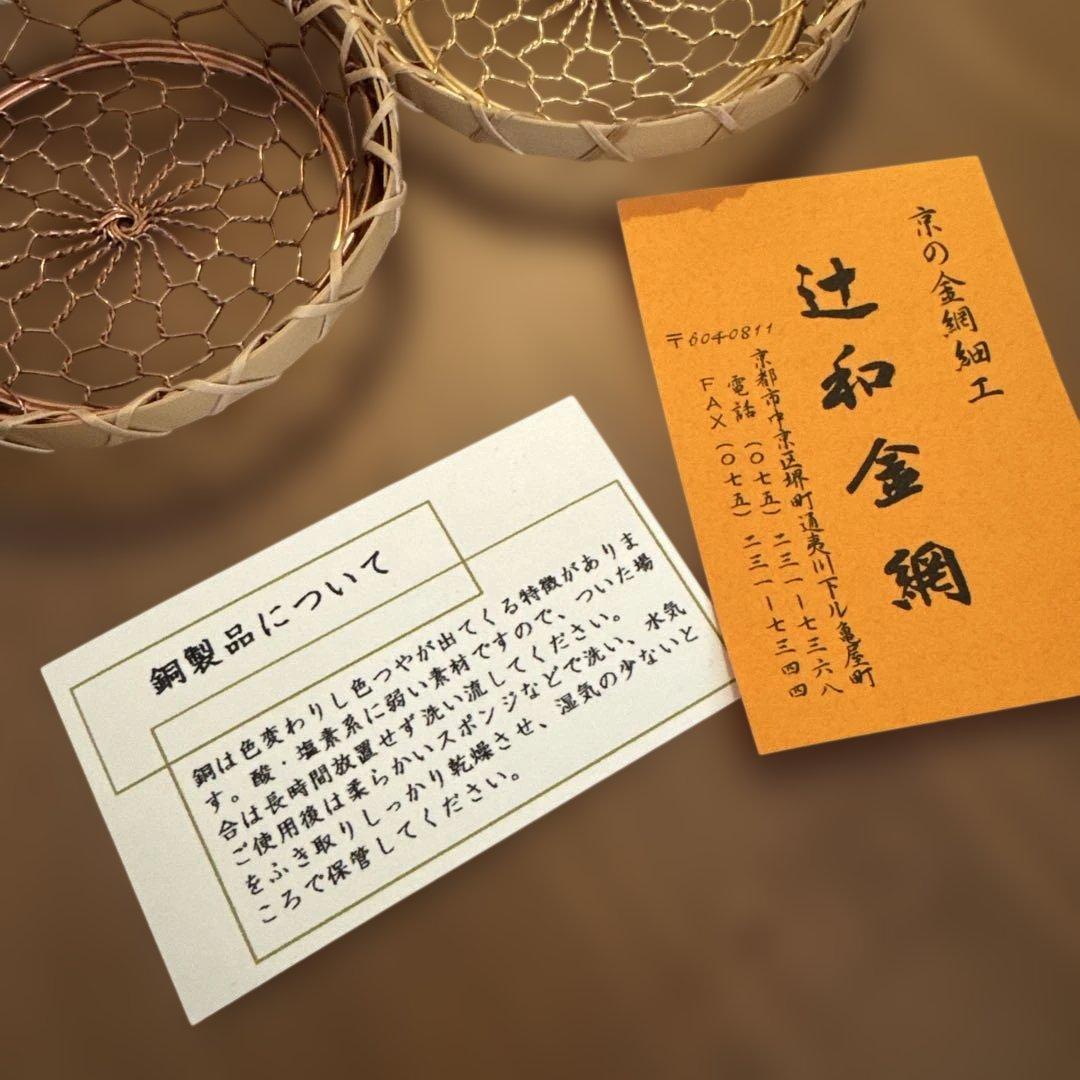 銅製品について
銅は色変わりし色つやが出てくる特徴がありま
す。酸・塩素系に弱い素材ですので、ついた場
合は長時間放置せず洗い流してください。
ご使用後は柔らかいスポンジなどで洗い、水気
をふき取りしっかり乾燥させ、湿気の少ないと
ころで保管してください。
京の金網細工
辻和金網
〒6040811
京都市中京区堺町通夷川下ル亀屋町
電話(〇七五)二三一ー七三六八
FAX(〇七五)二三一ー七三四四